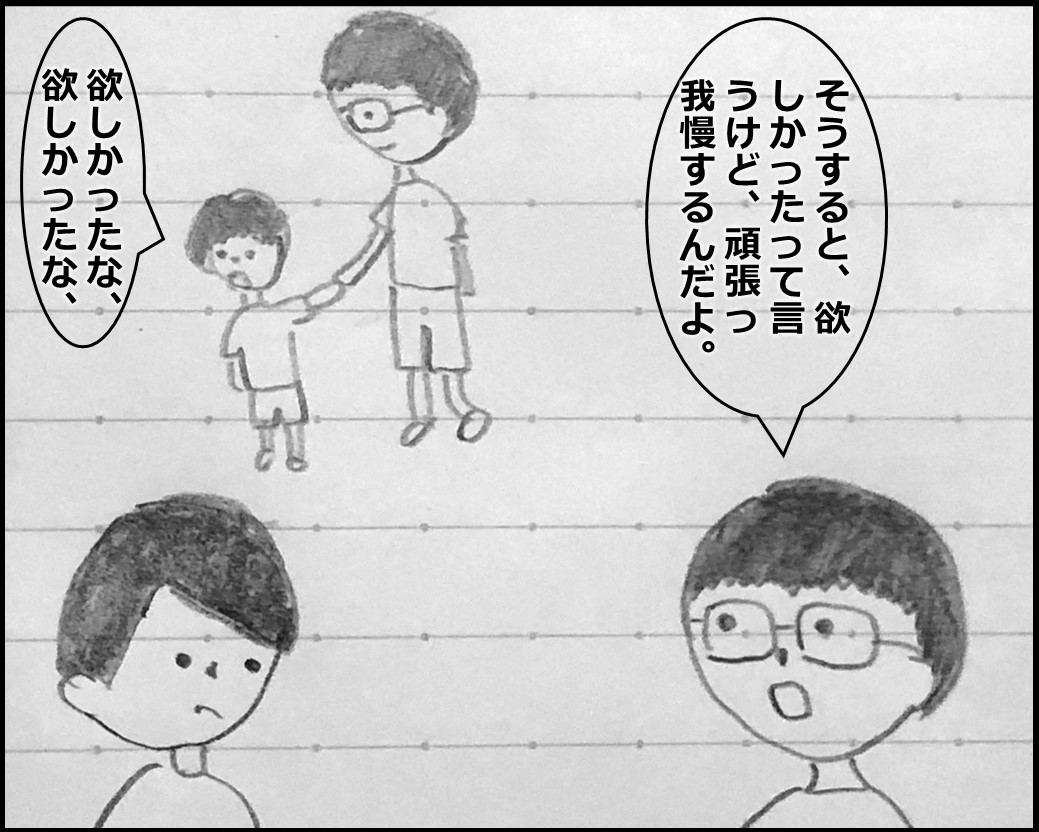 そうすると、欲
しかったって言
うけど、頑張っ
我慢するんだよ。
欲しかったな、
欲しかったな、